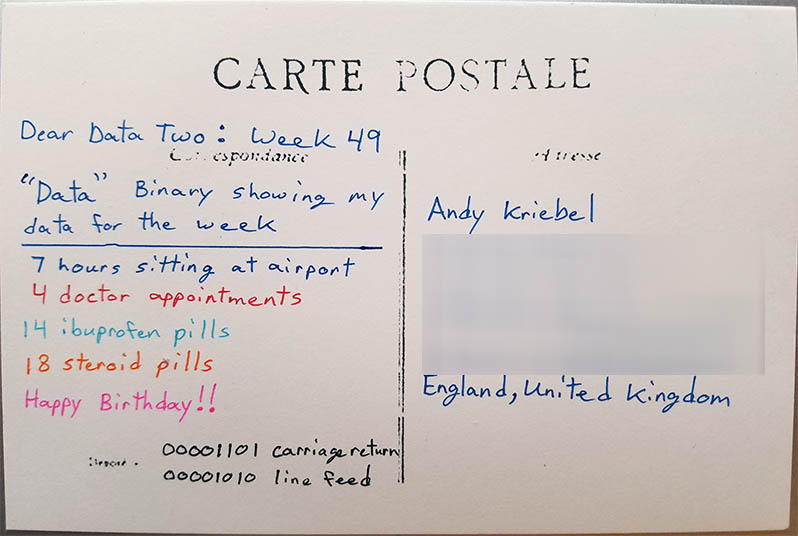 CARTE POSTALE
Dear Data Two: Week 49
"Data" Binary showing my
data for the week
7 hours sitting at airport
4 doctor appointments
14 ibuprofen pills
18 steroid pills
Happy Birthday!!
00001101 carriage return
00001010 line feed
Andy Kriebel
England, United Kingdom